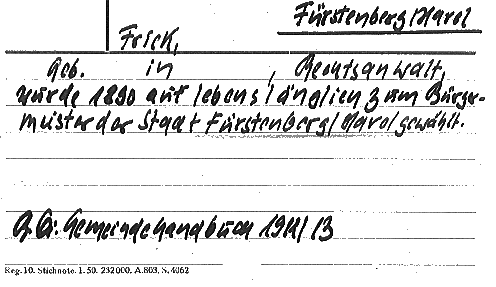 Fürstenberg/Havel
Frick,
Geb. in , Rechtsanwalt,
wurde 1890 auf lebenslänglich zum Bürger-
meister der Stadt Fürstenberg/Havel gewählt.
Gemeindehandbuch 1911/13
Reg. 10. Stichnote. 1. 50. 232000. A. 803. S. 4062